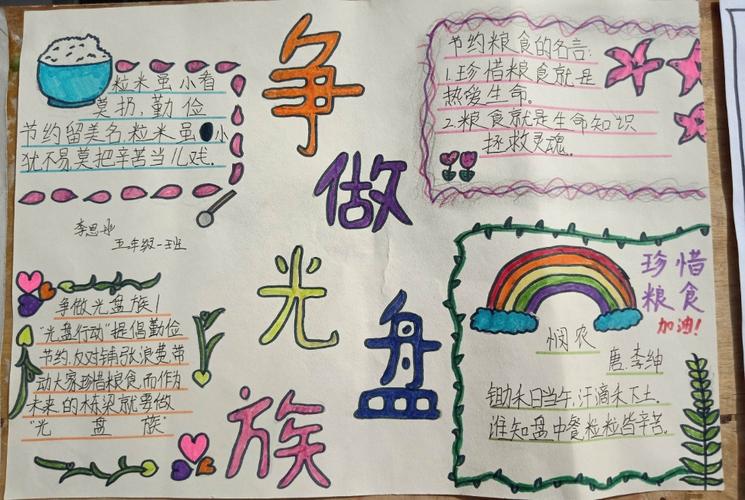 争做光盘族
粒米虽小君
莫扔,勤俭
节约留美名,粒米虽小
犹不易,莫把辛苦当儿戏.
五年级一班
争做光盘族!
"光盘行动"提倡勤俭
节约反对铺张浪费,带
动大家珍惜粮食,而作为
未来的栋梁就要做
"光盘族"
节约粮食的名言:
1.珍惜粮食就是
热爱生命.
2.粮食就是生命知识
拯救灵魂.
珍惜
粮食
加油!
悯农
唐.李绅
锄禾日当午,汗滴禾下土.
谁知盘中餐,粒粒皆辛苦.